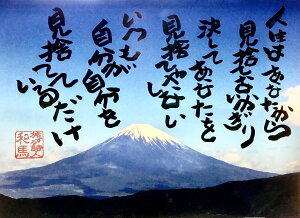 人生はあなたから
見捨てないかぎり
決してあなたを
見捨てやしない
いつも
自分が自分を
見捨てて
いるだけ